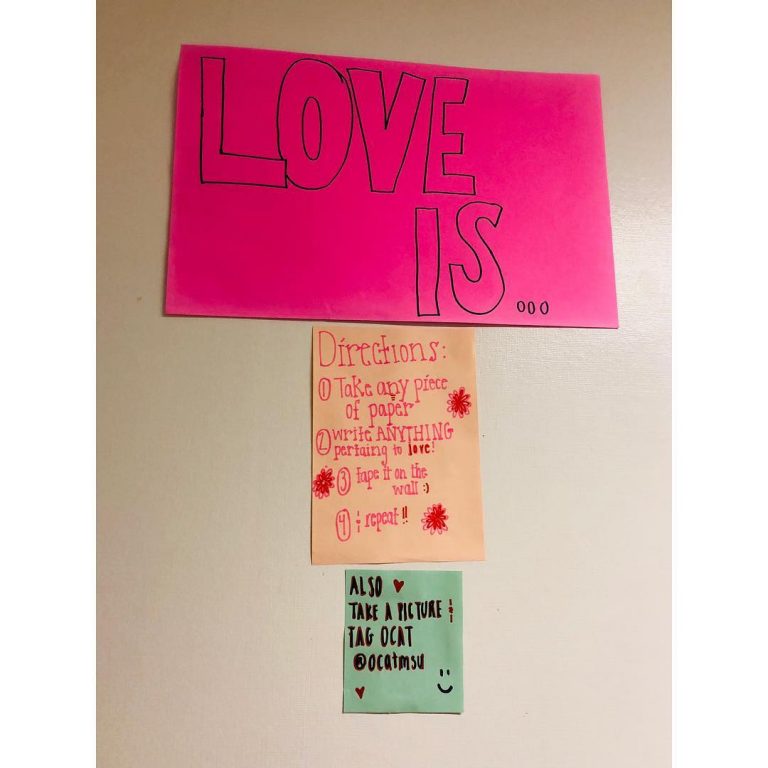 LOVE
IS...
Directions:
① Take any piece
of paper
② write ANYTHING
pertaing to love!
③ tape it on the
wall :)
④ & repeat!!
ALSO ♥
TAKE A PICTURE &
TAG OCAT
@ocatmsu
♥